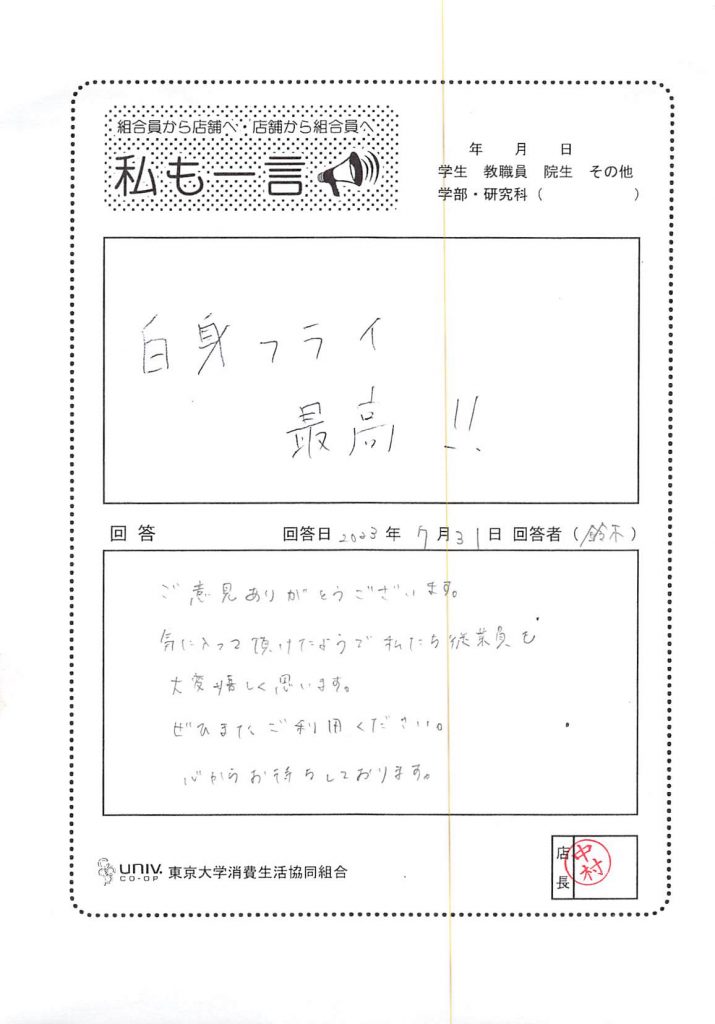 組合員から店舗へ・店舗から組合員へ
私も一言
年 月 日
学生 教職員 院生 その他
学部・研究科（ ）
白身フライ
最高!!
回答 回答日2023年7月31日 回答者（鈴木）
ご意見ありがとうございます。
気に入って頂けたようで私たち従業員も
大変嬉しく思います。
ぜひまたご利用ください。
心からお待ちしております。
UNIV. CO-OP 東京大学消費生活協同組合
店長 中村